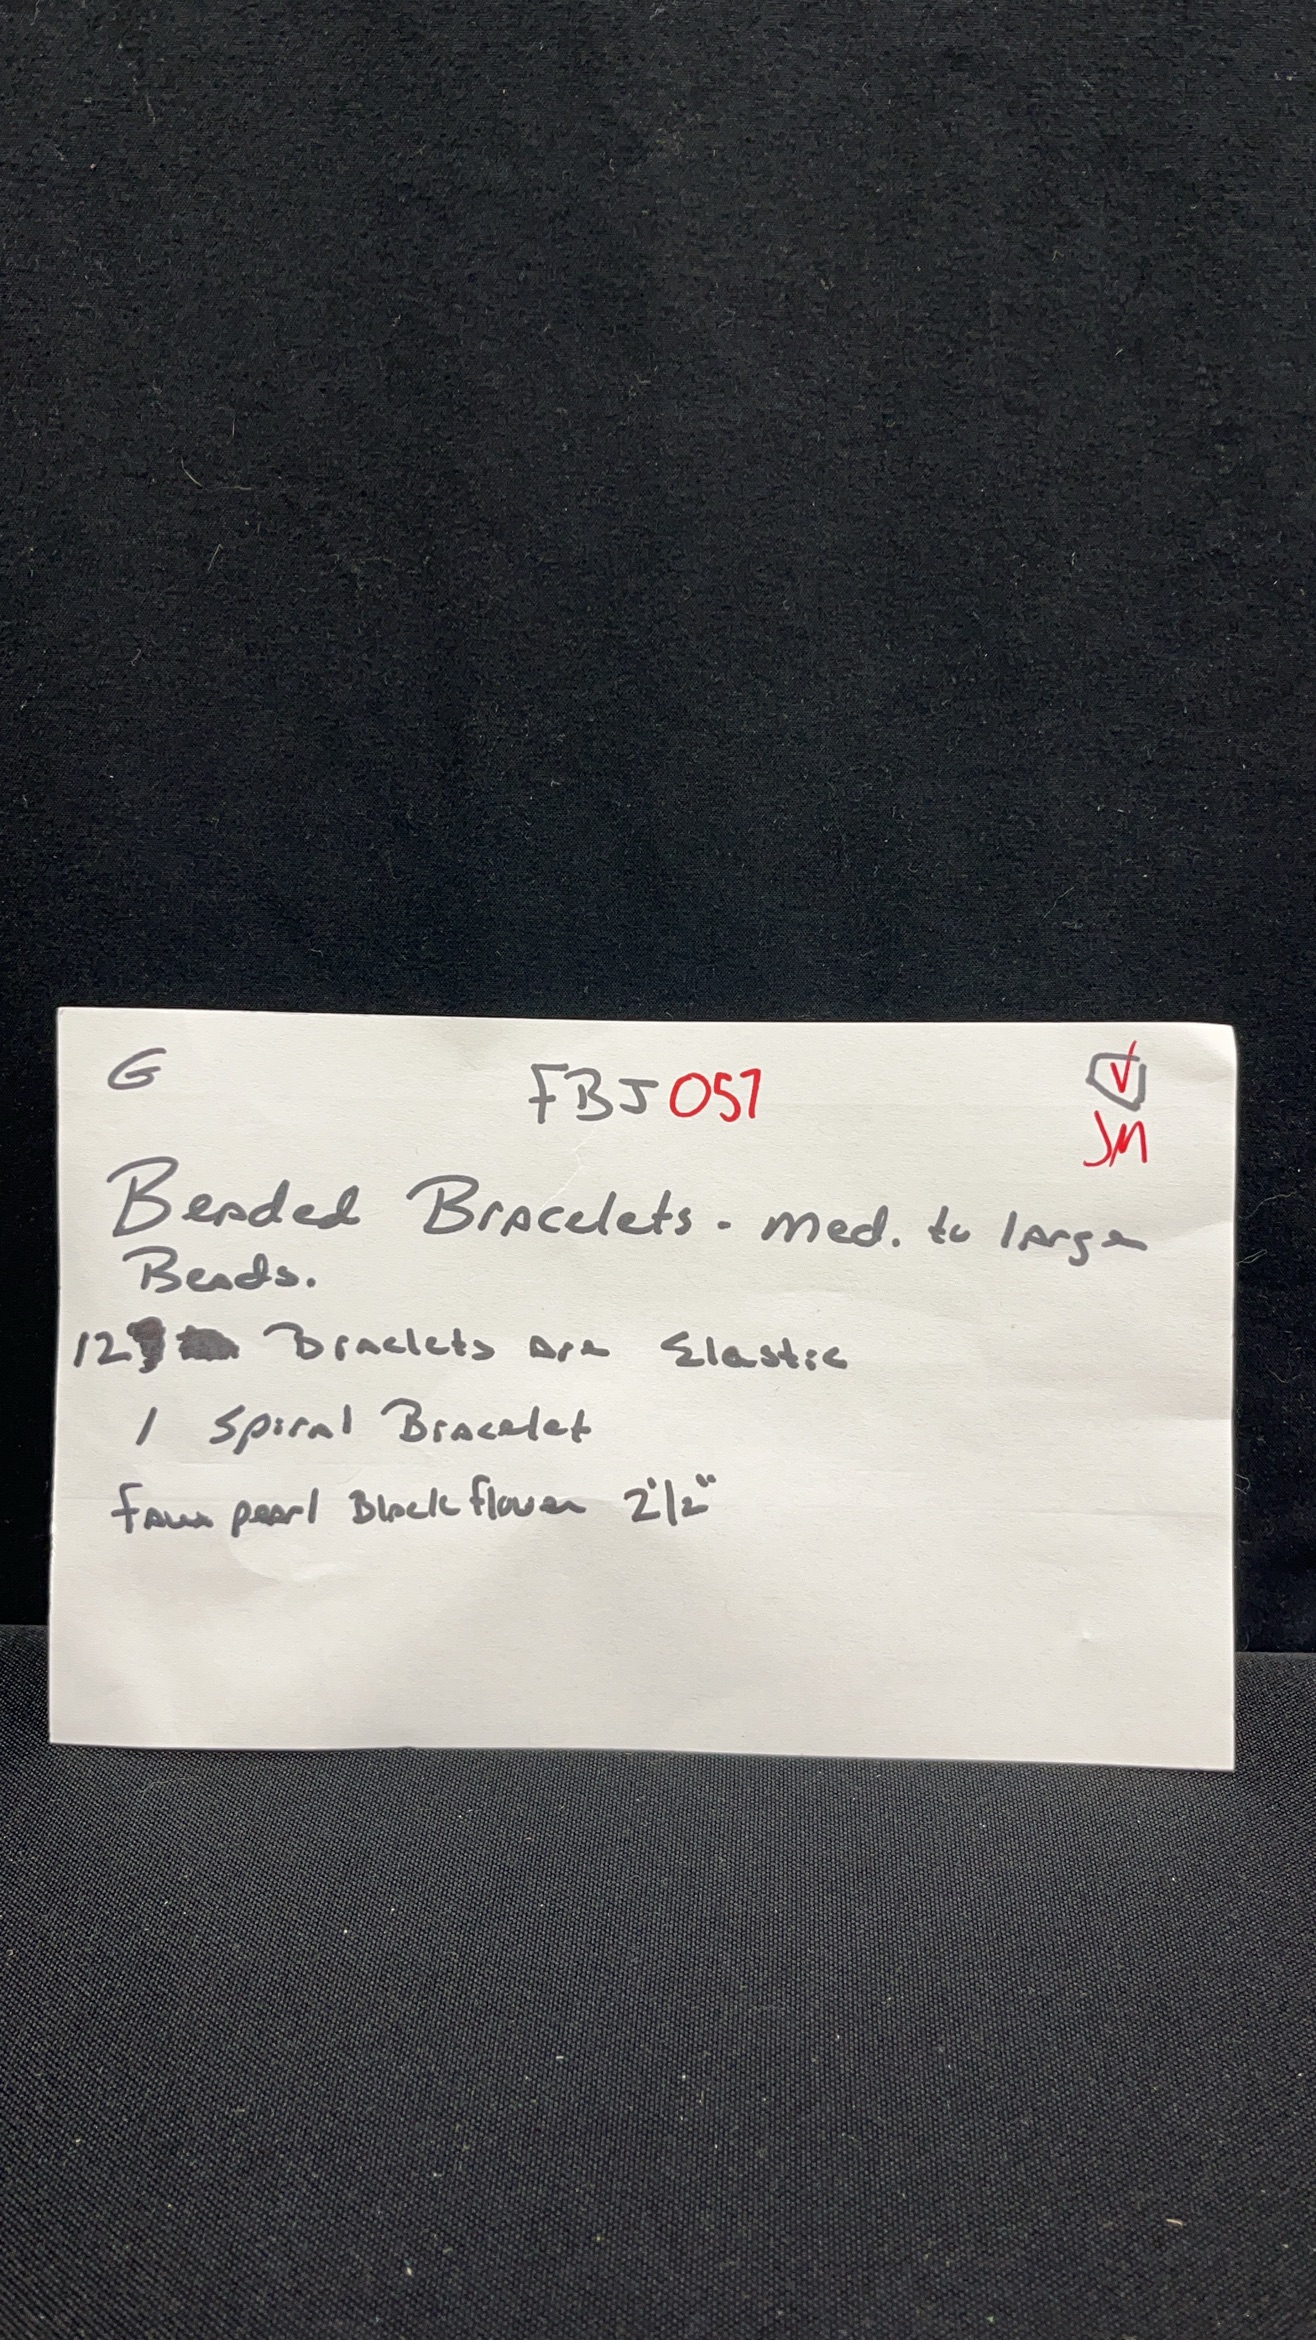 G
FBJ057
✓
JM
Beaded Bracelets - med. to large
Beads.
12 Braclets are Elastic
1 Spiral Bracelet
faux pearl Black flower 2 1/2"